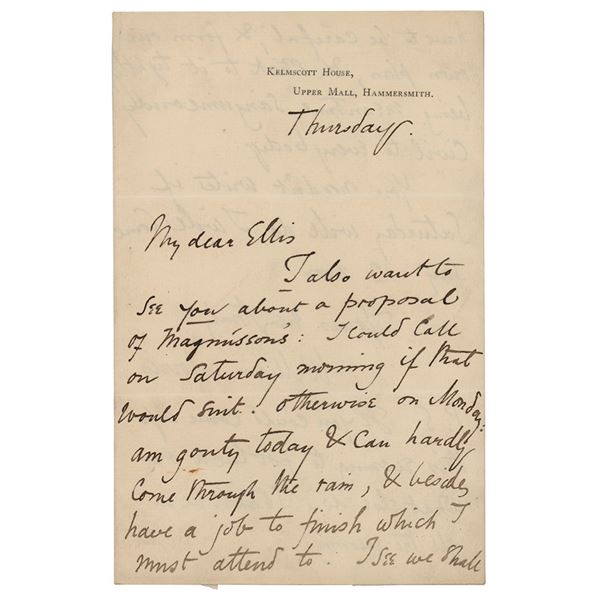 KELMSCOTT HOUSE,
UPPER MALL, HAMMERSMITH.
Thursday.
My dear Ellis
I also want to
see you about a proposal
of Magnússon's: I could call
on Saturday morning if that
would suit: otherwise on Monday:
am gouty today & can hardly
come through the rain, & besides
have a job to finish which I
must attend to. I see we shall